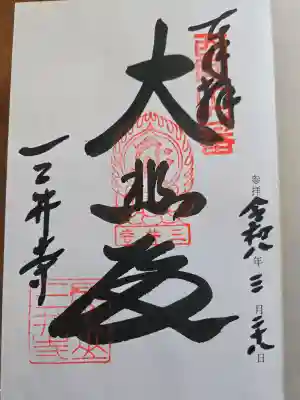 奉拝
大悲殿
三井寺
参拝 令和八年三月二十八日